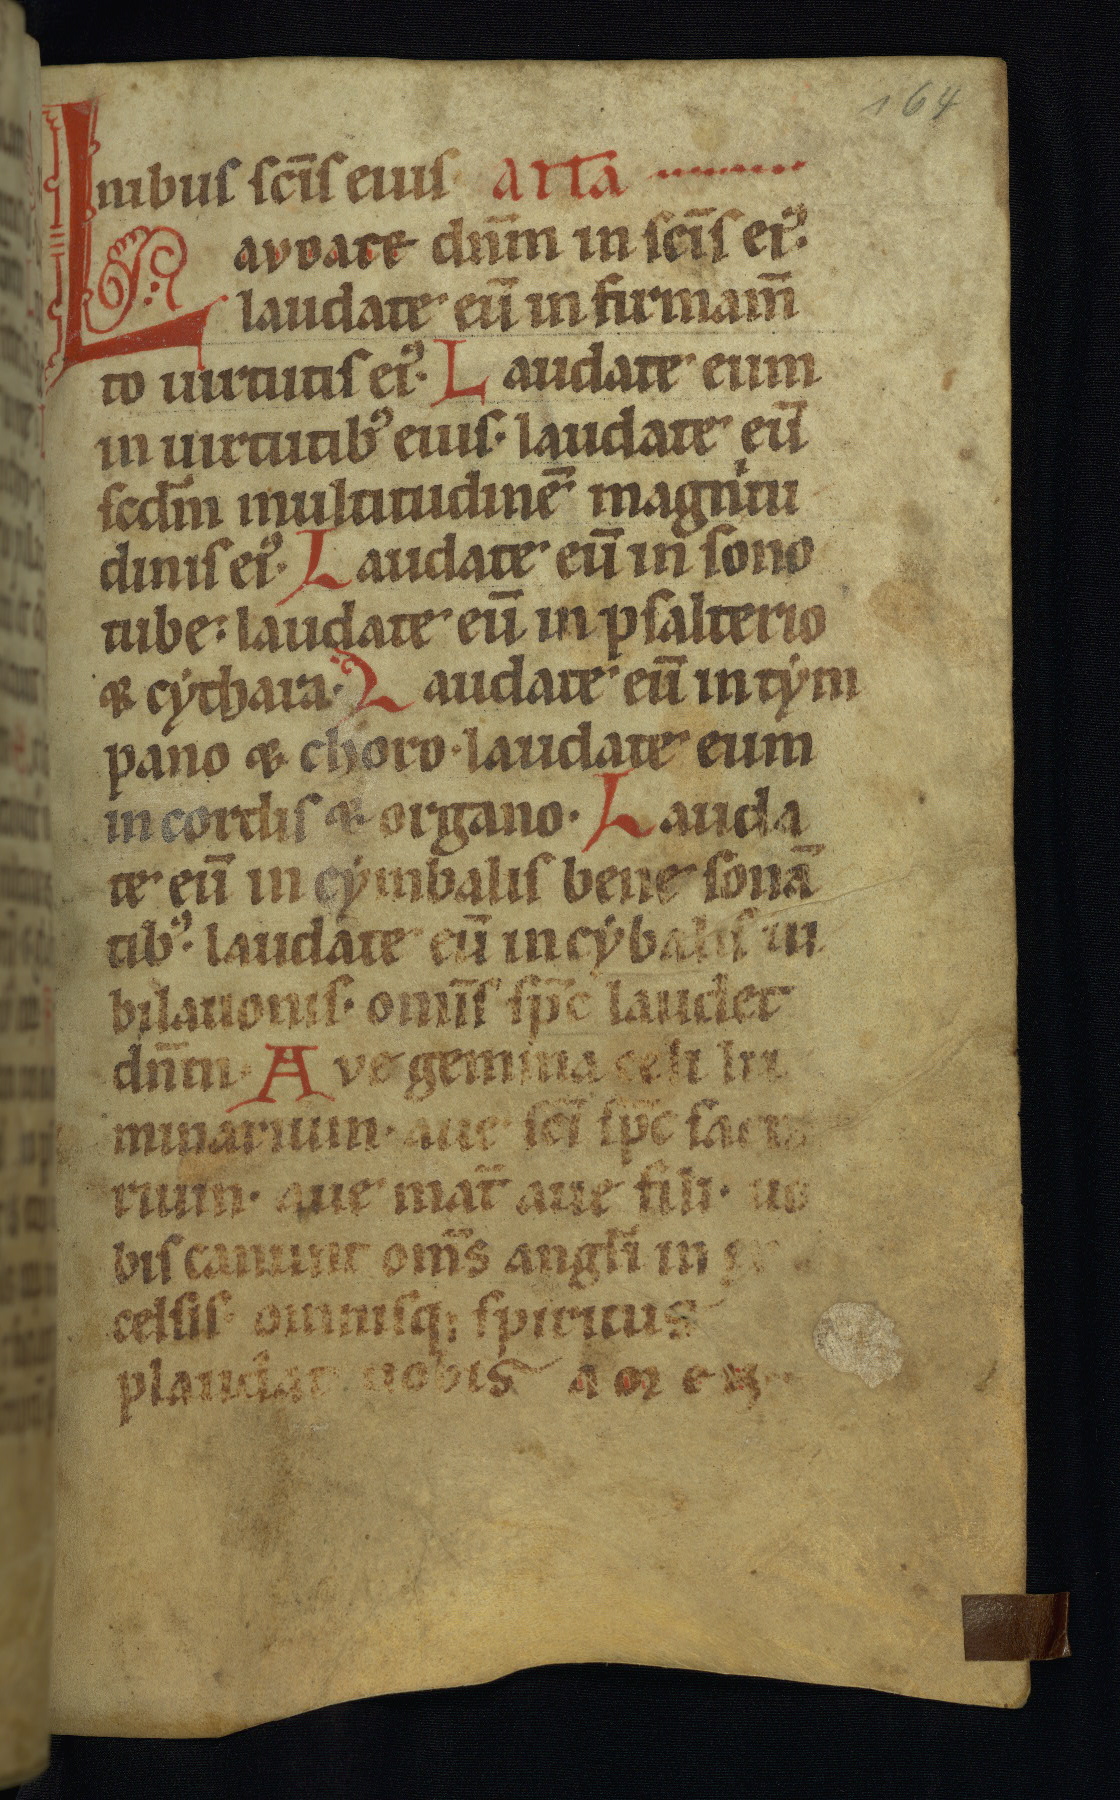 164
nibus sc̄is eius · aɪɪa
Lavdate dn̄m in sc̄is ei⁹.
laudate eū in firmam̄
to uirtutis ei⁹. Laudate eum
in uirtutib⁹ eius· laudate eū
scdm̄ multitudinē magnitu
dinis ei⁹. Laudate eū in sono
tube: laudate eū in psalterio
& cythara· Laudate eū in tym
pano & choro· laudate eum
in cordis & organo· Lauda
te eū in cymbalis bene sonā
tib⁹· laudate eū in cybalis iu
bilationis· omīs sp̄c laudet
dn̄m· Ave gemina celi lu
minarium· aue sc̄i sp̄c sacra
rium· aue mat̄ aue fili· uo
bis canunt om̄s angłi in
celsis· omnisq; spiritus
plaudat uobis amen